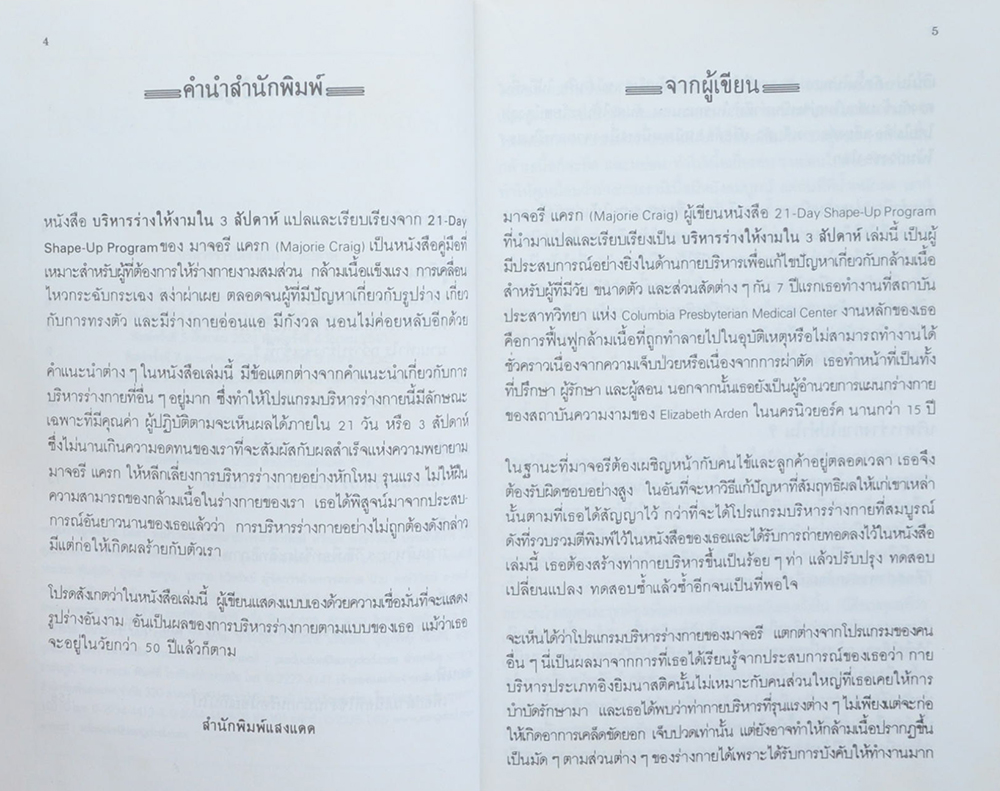 4
คำนำสำนักพิมพ์
หนังสือ บริหารร่างให้งามใน 3 สัปดาห์ แปลและเรียบเรียงจาก 21-Day
Shape-Up Program ของ มาจอรี แครก (Majorie Craig) เป็นหนังสือคู่มือที่
เหมาะสำหรับผู้ที่ต้องการให้ร่างกายงามสมส่วน กล้ามเนื้อแข็งแรง การเคลื่อน
ไหวกระฉับกระเฉง สง่าผ่าเผย ตลอดจนผู้ที่มีปัญหาเกี่ยวกับรูปร่าง เกี่ยว
กับการทรงตัว และมีร่างกายอ่อนแอ มีกังวล นอนไม่ค่อยหลับอีกด้วย
คำแนะนำต่าง ๆ ในหนังสือเล่มนี้ มีข้อแตกต่างจากคำแนะนำเกี่ยวกับการ
บริหารร่างกายที่อื่น ๆ อยู่มาก ซึ่งทำให้โปรแกรมบริหารร่างกายนี้มีลักษณะ
เฉพาะที่มีคุณค่า ผู้ปฏิบัติตามจะเห็นผลได้ภายใน 21 วัน หรือ 3 สัปดาห์
ซึ่งไม่นานเกินความอดทนของเราที่จะสัมผัสกับผลสำเร็จแห่งความพยายาม
มาจอรี แครก ให้หลีกเลี่ยงการบริหารร่างกายอย่างหักโหม รุนแรง ไม่ให้ฝืน
ความสามารถของกล้ามเนื้อในร่างกายของเรา เธอได้พิสูจน์มาจากประสบ-
การณ์อันยาวนานของเธอแล้วว่า การบริหารร่างกายอย่างไม่ถูกต้องดังกล่าว
มีแต่ก่อให้เกิดผลร้ายกับตัวเรา
โปรดสังเกตว่าในหนังสือเล่มนี้ ผู้เขียนแสดงแบบเองด้วยความเชื่อมั่นที่จะแสดง
รูปร่างอันงาม อันเป็นผลของการบริหารร่างกายตามแบบของเธอ แม้ว่าเธอ
จะอยู่ในวัยกว่า 50 ปีแล้วก็ตาม
สำนักพิมพ์แสงแดด
5
จากผู้เขียน
มาจอรี แครก (Majorie Craig) ผู้เขียนหนังสือ 21-Day Shape-Up Program
ที่นำมาแปลและเรียบเรียงเป็น บริหารร่างให้งามใน 3 สัปดาห์ เล่มนี้ เป็นผู้
มีประสบการณ์อย่างยิ่งในด้านกายบริหารเพื่อแก้ไขปัญหาเกี่ยวกับกล้ามเนื้อ
สำหรับผู้ที่มีวัย ขนาดตัว และส่วนสัดต่าง ๆ กัน 7 ปีแรกเธอทำงานที่สถาบัน
ประสาทวิทยา แห่ง Columbia Presbyterian Medical Center งานหลักของเธอ
คือการฟื้นฟูกล้ามเนื้อที่ถูกทำลายไปในอุบัติเหตุหรือไม่สามารถทำงานได้
ชั่วคราวเนื่องจากความเจ็บป่วยหรือเนื่องจากการผ่าตัด เธอทำหน้าที่เป็นทั้ง
ที่ปรึกษา ผู้รักษา และผู้สอน นอกจากนั้นเธอยังเป็นผู้อำนวยการแผนกร่างกาย
ของสถาบันความงามของ Elizabeth Arden ในนครนิวยอร์ค นานกว่า 15 ปี
ในฐานะที่มาจอรีต้องเผชิญหน้ากับคนไข้และลูกค้าอยู่ตลอดเวลา เธอจึง
ต้องรับผิดชอบอย่างสูง ในอันที่จะหาวิธีแก้ปัญหาที่สัมฤทธิผลให้แก่เขาเหล่า
นั้นตามที่เธอได้สัญญาไว้ กว่าที่จะได้โปรแกรมบริหารร่างกายที่สมบูรณ์
ดังที่รวบรวมตีพิมพ์ไว้ในหนังสือของเธอและได้รับการถ่ายทอดลงไว้ในหนังสือ
เล่มนี้ เธอต้องสร้างท่ากายบริหารขึ้นเป็นร้อย ๆ ท่า แล้วปรับปรุง ทดสอบ
เปลี่ยนแปลง ทดสอบซ้ำแล้วซ้ำอีกจนเป็นที่พอใจ
จะเห็นได้ว่าโปรแกรมบริหารร่างกายของมาจอรี แตกต่างจากโปรแกรมของคน
อื่น ๆ นี่เป็นผลมาจากการที่เธอได้เรียนรู้จากประสบการณ์ของเธอว่า กาย
บริหารประเภทอิงยิมนาสติคนั้นไม่เหมาะกับคนส่วนใหญ่ที่เธอเคยให้การ
บำบัดรักษามา และเธอได้พบว่าท่ากายบริหารที่รุนแรงต่าง ๆ ไม่เพียงแต่จะก่อ
ให้เกิดอาการเคล็ดขัดยอก เจ็บปวดเท่านั้น แต่ยังอาจทำให้กล้ามเนื้อปรากฏขึ้น
เป็นมัด ๆ ตามส่วนต่าง ๆ ของร่างกายได้เพราะได้รับการบังคับให้ทำงานมาก